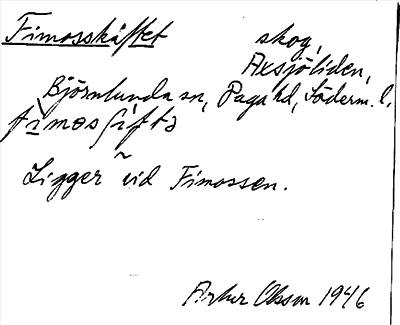 Fimosskäftet skog,
Axsjöliden,
Björnlunda sn, Daga hd, Söderm. l.
Ligger vid Fimossen.
Artur Olsson 1946